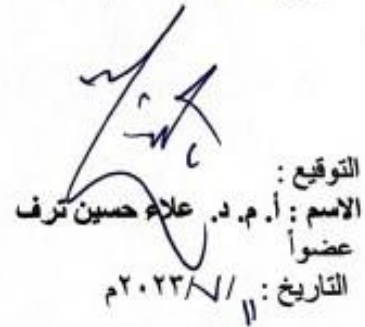 التوقيع :
الاسم : أ. م. د. علاء حسين ترف
عضواً
التاريخ : / / ٢٠٢٣م